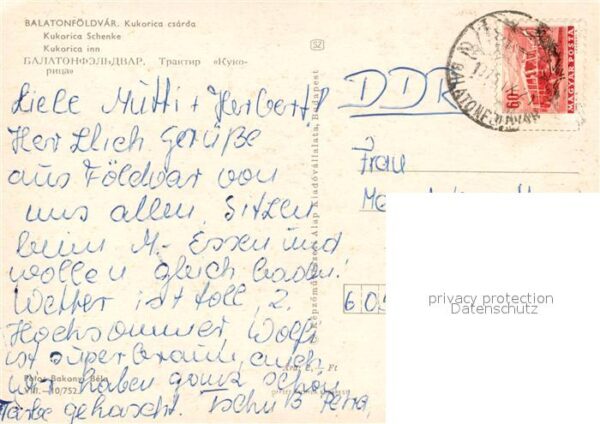 BALATONFÖLDVÁR. Kukorica csárda
Kukorica Schenke
Kukorica inn
БАЛАТОНФЭЛЬДВАР. Трактир «Куко-
рица»
SZ
60f
MAGYAR POSTA
BALATONFÖLDVÁR
DDR
Liebe Mutti + Herbert!
Herzlich Gerüße
aus Földvar von
uns allen. Sitzen
beim M.-Essen und
wollen gleich baden!
Wetter ist toll, 2.
Hochsommer, Wolfi
ist superbraun, auch
wir haben ganz schön
Farbe gehascht. Tschüß Petra,
Frau
Képzőművészeti Alap Kiadóvállalata, Budapest
privacy protection
Datenschutz
Ára: Ft
Foto: Bakonyi Béla
VIII.—10/752